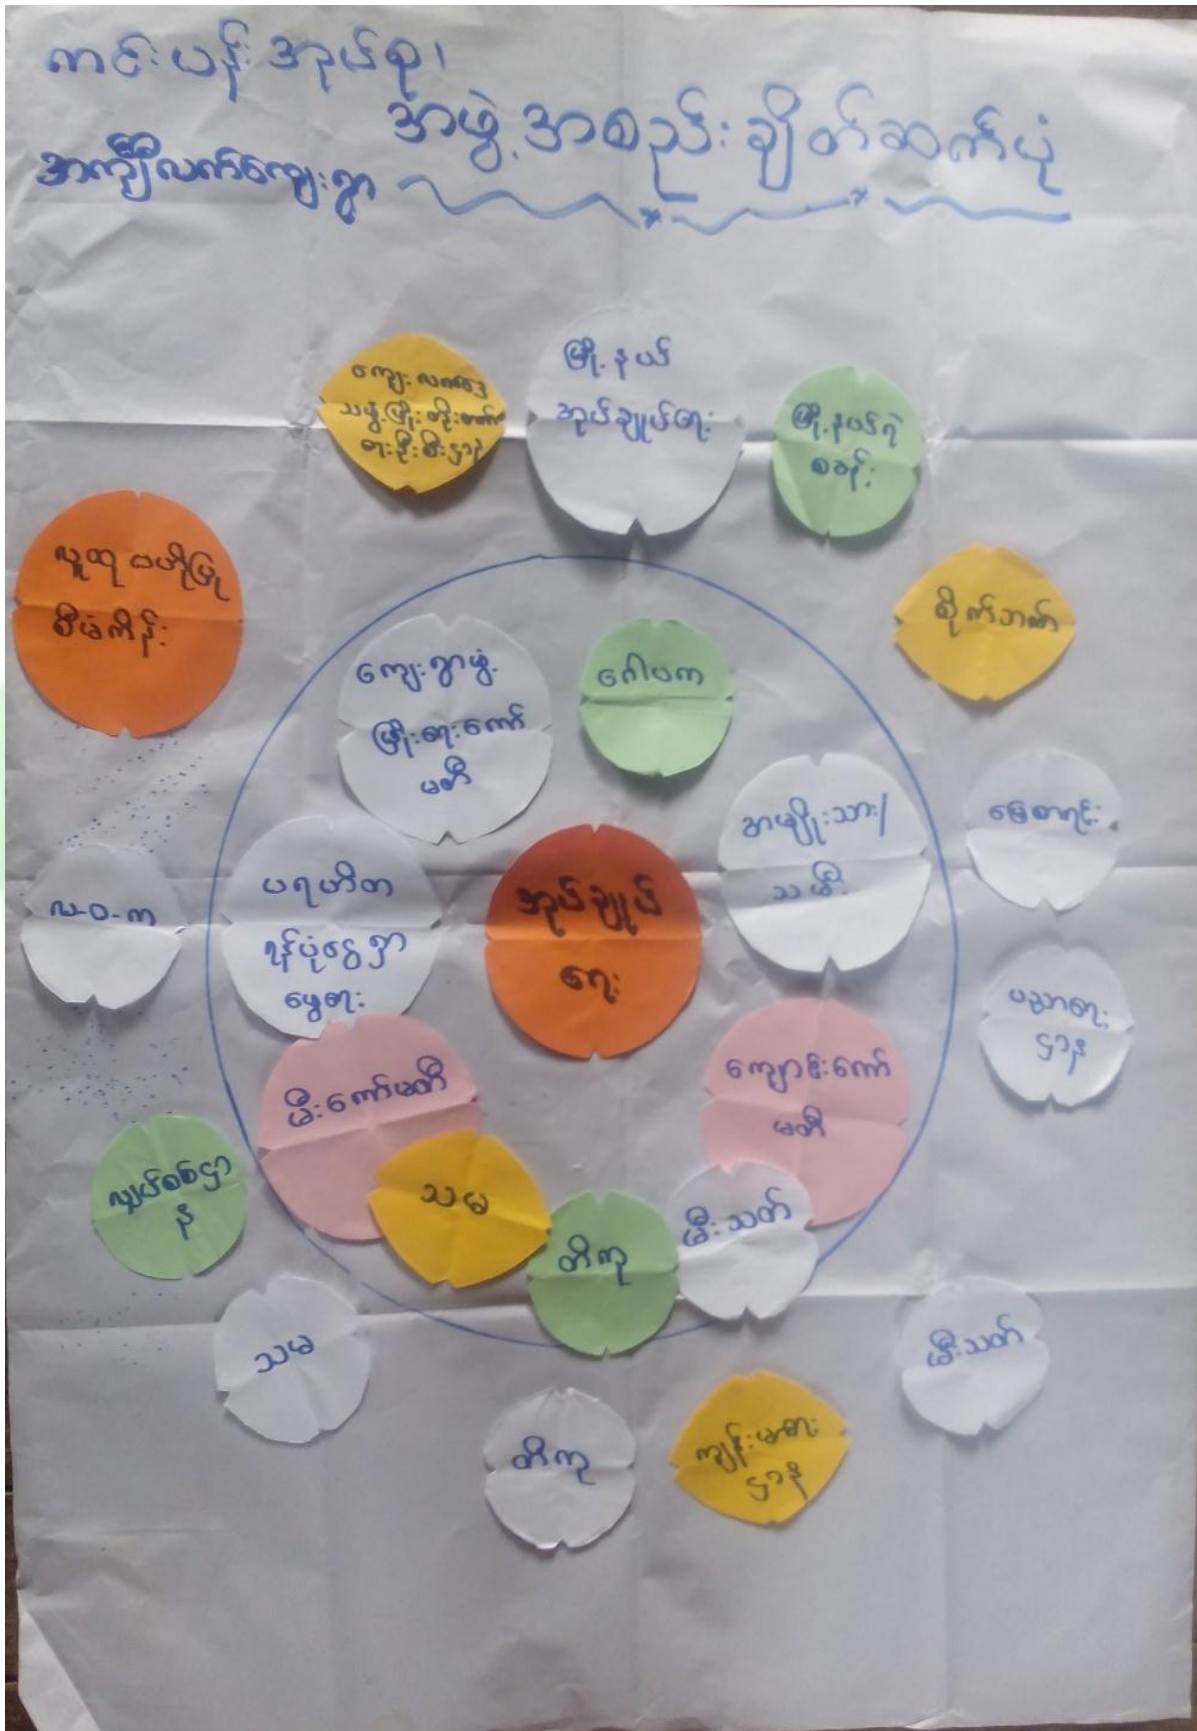 ကင်းပွန်းအုပ်စု၊
အဖွဲ့အစည်းချိတ်ဆက်ပုံ
ကျေးလက်ဒေ
သဖွံ့ဖြိုးတိုးတက်
ရေးဦးစီးဌာန
မြို့နယ်
အုပ်ချုပ်ရေး
မြို့နယ်ရဲ
စခန်း
လူထုဗဟိုပြု
စီမံကိန်း
စိုက်ဘဏ်
ကျေးရွာဖွံ့
ဖြိုးရေးကော်
မတီ
ဂေါပက
အမျိုးသား/
သမီး
မြေစာရင်း
လ-ဝ-က
ပရဟိတ
ရန်ပုံငွေရှာ
ဖွေရေး
အုပ်ချုပ်
ရေး
ပညာရေး
ဌာန
မီးကော်မတီ
ကျောင်းကော်
မတီ
လျှပ်စစ်ဌာ
န
သမ
တီကု
မီးသတ်
သမ
မီးသတ်
တီကု
ကျန်းမာရေး
ဌာန